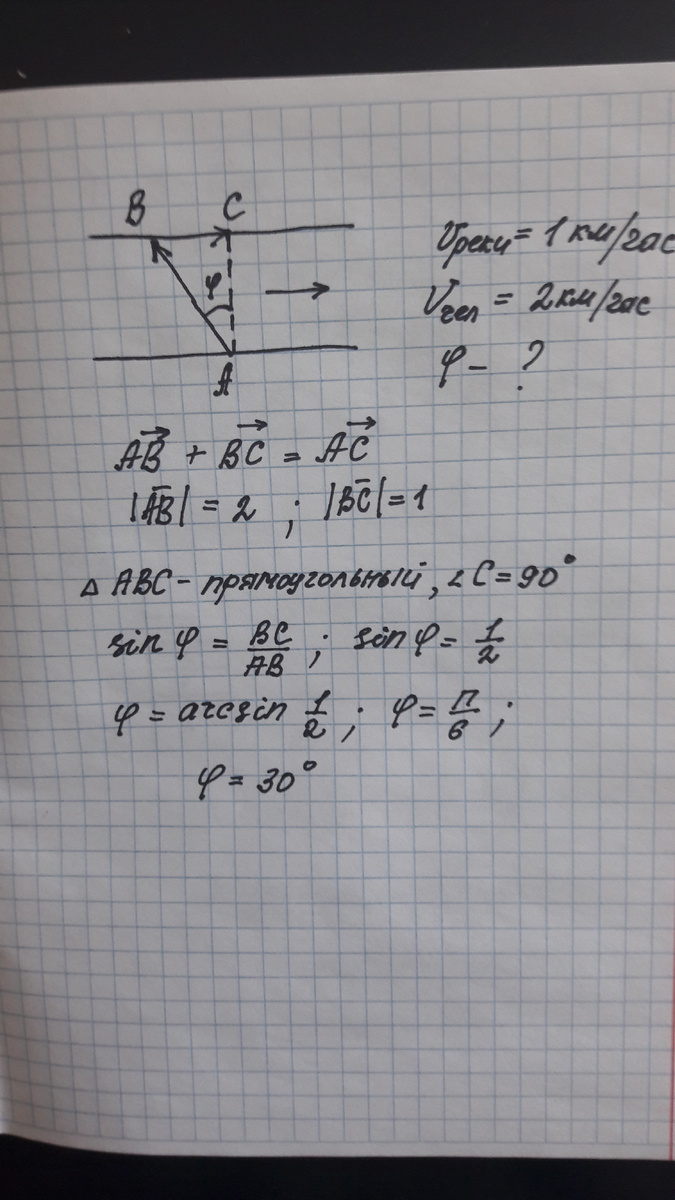 B C
φ
A
Vреки = 1 км/час
Vчел = 2 км/час
φ - ?
AB + BC = AC
|AB| = 2 ; |BC| = 1
Δ ABC - прямоугольный, ∠C = 90°
sin φ = BC/AB ; sin φ = 1/2
φ = arcsin 1/2 ; φ = π/6 ;
φ = 30°